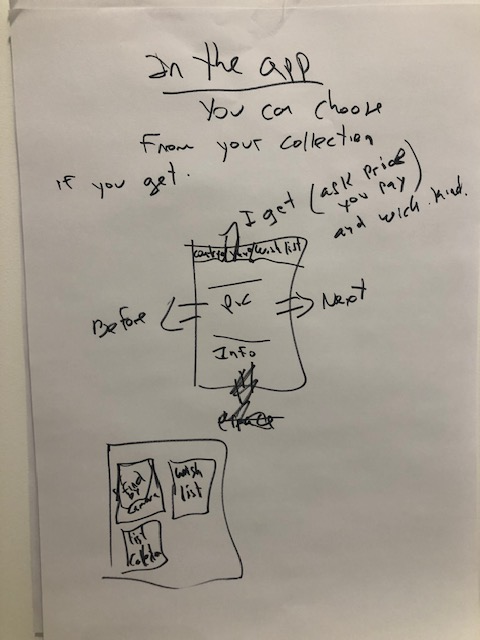 In the app
You can choose
From your collection
if you get.
I get (ask price
you pay)
and wich kind.
wish list
Pic
Before
Next
Info
Find
by
camera
wish
list
list